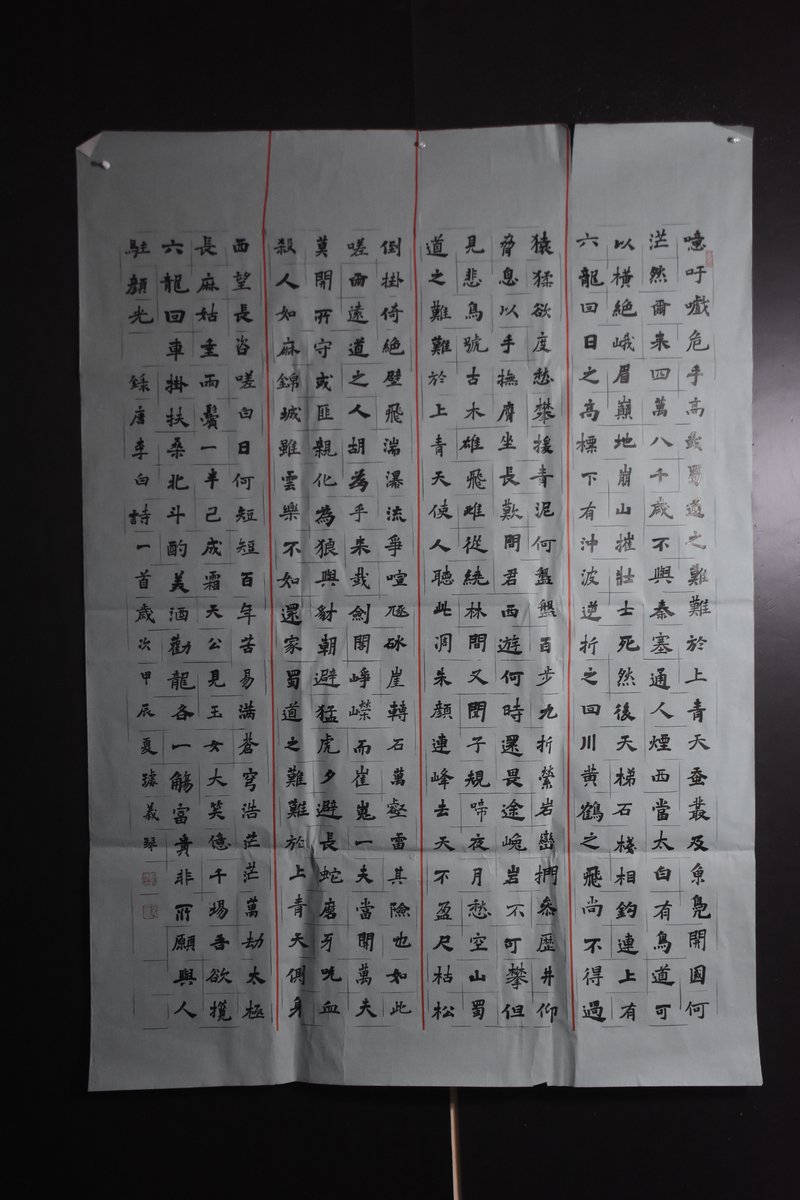 噫吁戲危乎高哉蜀道之難難於上青天蚕叢及魚鳧開國何
茫然爾来四萬八千歲不與秦塞通人煙西當太白有鳥道可
以橫絕峨眉巔地崩山摧壯士死然後天梯石棧相鈎連上有
六龍回日之高標下有沖波逆折之回川黃鶴之飛尚不得過
猿猱欲度愁攀援青泥何盤盤百步九折縈岩巒捫參歷井仰
脅息以手撫膺坐長歎問君西遊何時還畏途巉岩不可攀但
見悲鳥號古木雄飛雌從繞林間又聞子規啼夜月愁空山蜀
道之難難於上青天使人聽此凋朱顏連峰去天不盈尺枯松
倒掛倚絕壁飛湍瀑流爭喧豗砯崖轉石萬壑雷其險也如此
嗟爾遠道之人胡為乎来哉劍閣崢嶸而崔嵬一夫當開萬夫
莫開所守或匪親化為狼與豺朝避猛虎夕避長蛇磨牙吮血
殺人如麻錦城雖雲樂不如還家蜀道之難難於上青天側身
西望長咨嗟白日何短短百年苦易滿蒼穹浩茫茫萬劫太極
長麻姑垂兩鬢一半已成霜天公見玉女大笑億千場吾欲攬
六龍回車掛扶桑北斗酌美酒勸龍各一觴富貴非所願與人
駐顏光 錄唐李白詩一首歲次甲辰夏璩義琴